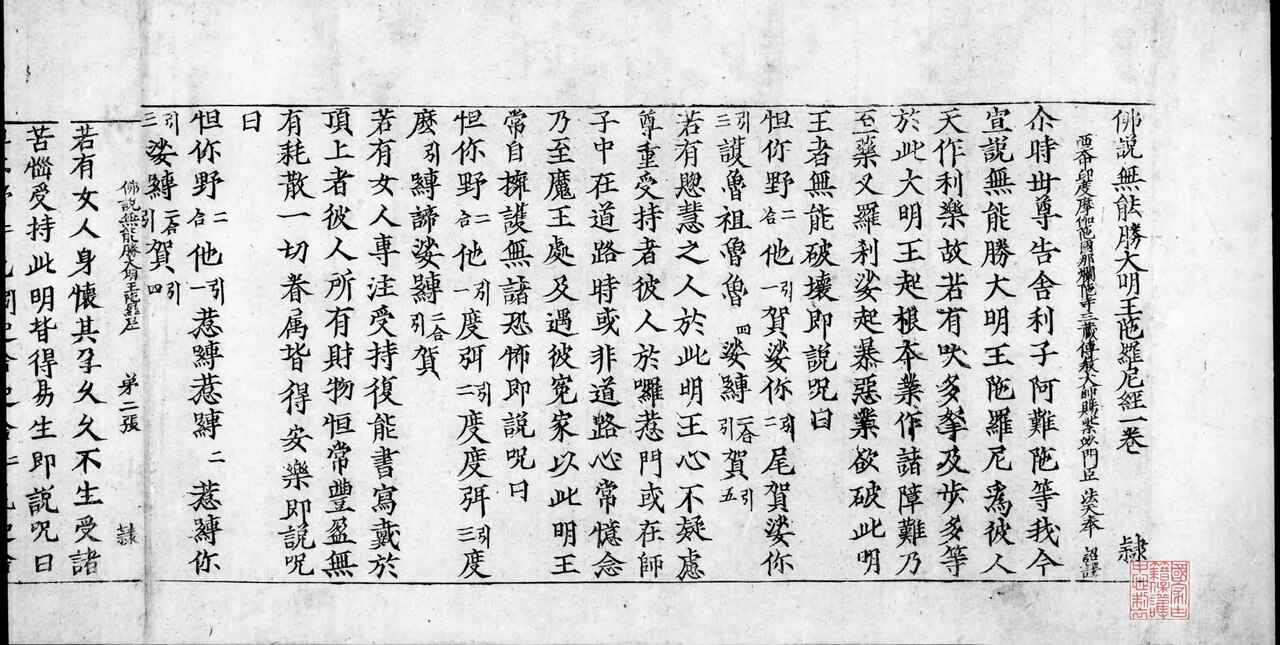 佛說無能勝大明王陁羅尼經一卷 隸
西天中印度摩伽陁國那爛陁寺三藏傳教大師賜紫沙門臣 法天奉 詔譯
尒時世尊告舍利子阿難陁等我今
宣說無能勝大明王陁羅尼爲彼人
天作利樂故若有吠多拏及步多等
於此大明王起根夲業作諸障難乃
至藥叉羅刹娑起暴惡業欲破此明
王者無能破壞即說呪曰
怛你野二合他一引賀娑你二引尾賀娑你
三引護魯祖魯魯四娑縛二合引賀五引
若有慜慧之人於此明王心不疑慮
尊重受持者彼人於囉惹門或在師
子中在道路時或非道路心常憶念
乃至魔王處及遇彼寃家以此明王
常自擁護無諸恐怖即說呪曰
怛你野二合他一引度弭二引度度弭三引度
麽引縛諦娑縛二合引賀
若有女人專注受持復能書寫戴於
頂上者彼人所有財物恒常豐盈無
有耗散一切眷属皆得安樂即說呪
曰
怛你野二合他一引惹縛惹縛二惹縛你
三引娑縛二合引賀四引
佛說無能勝大明王陁羅尼經 弟二張 隸
若有女人身懷其孕久久不生受諸
苦惱受持此明皆得易生即說呪曰